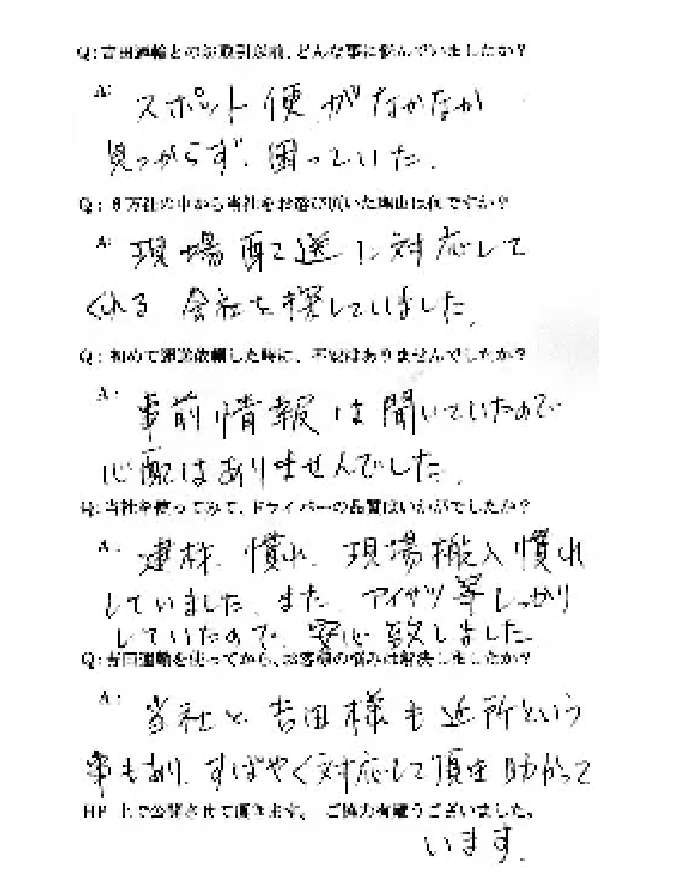 Q：吉田運輸とのお取引以前、どんな事に悩んでいましたか？
A： スポット便がなかなか
見つからず、困っていた。
Q：6万社の中から当社をお選び頂いた理由は何ですか？
A： 現場配送に対応して
くれる会社を探していました。
Q：初めて運送依頼した時に、不安はありませんでしたか？
A： 事前情報は聞いていたので
心配はありませんでした。
Q：当社を使ってみて、ドライバーの品質はいかがでしたか？
A： 建材慣れ、現場搬入慣れ
していました。また、アイサツ等しっかり
していたので、安心致しました。
Q：吉田運輸を使ってから、お客様の悩みは解決しましたか？
A： 当社と吉田様も近所という
事もあり、すばやく対応して頂き助かって
HP上で公開させて頂きます。 ご協力有難うございました。
います。